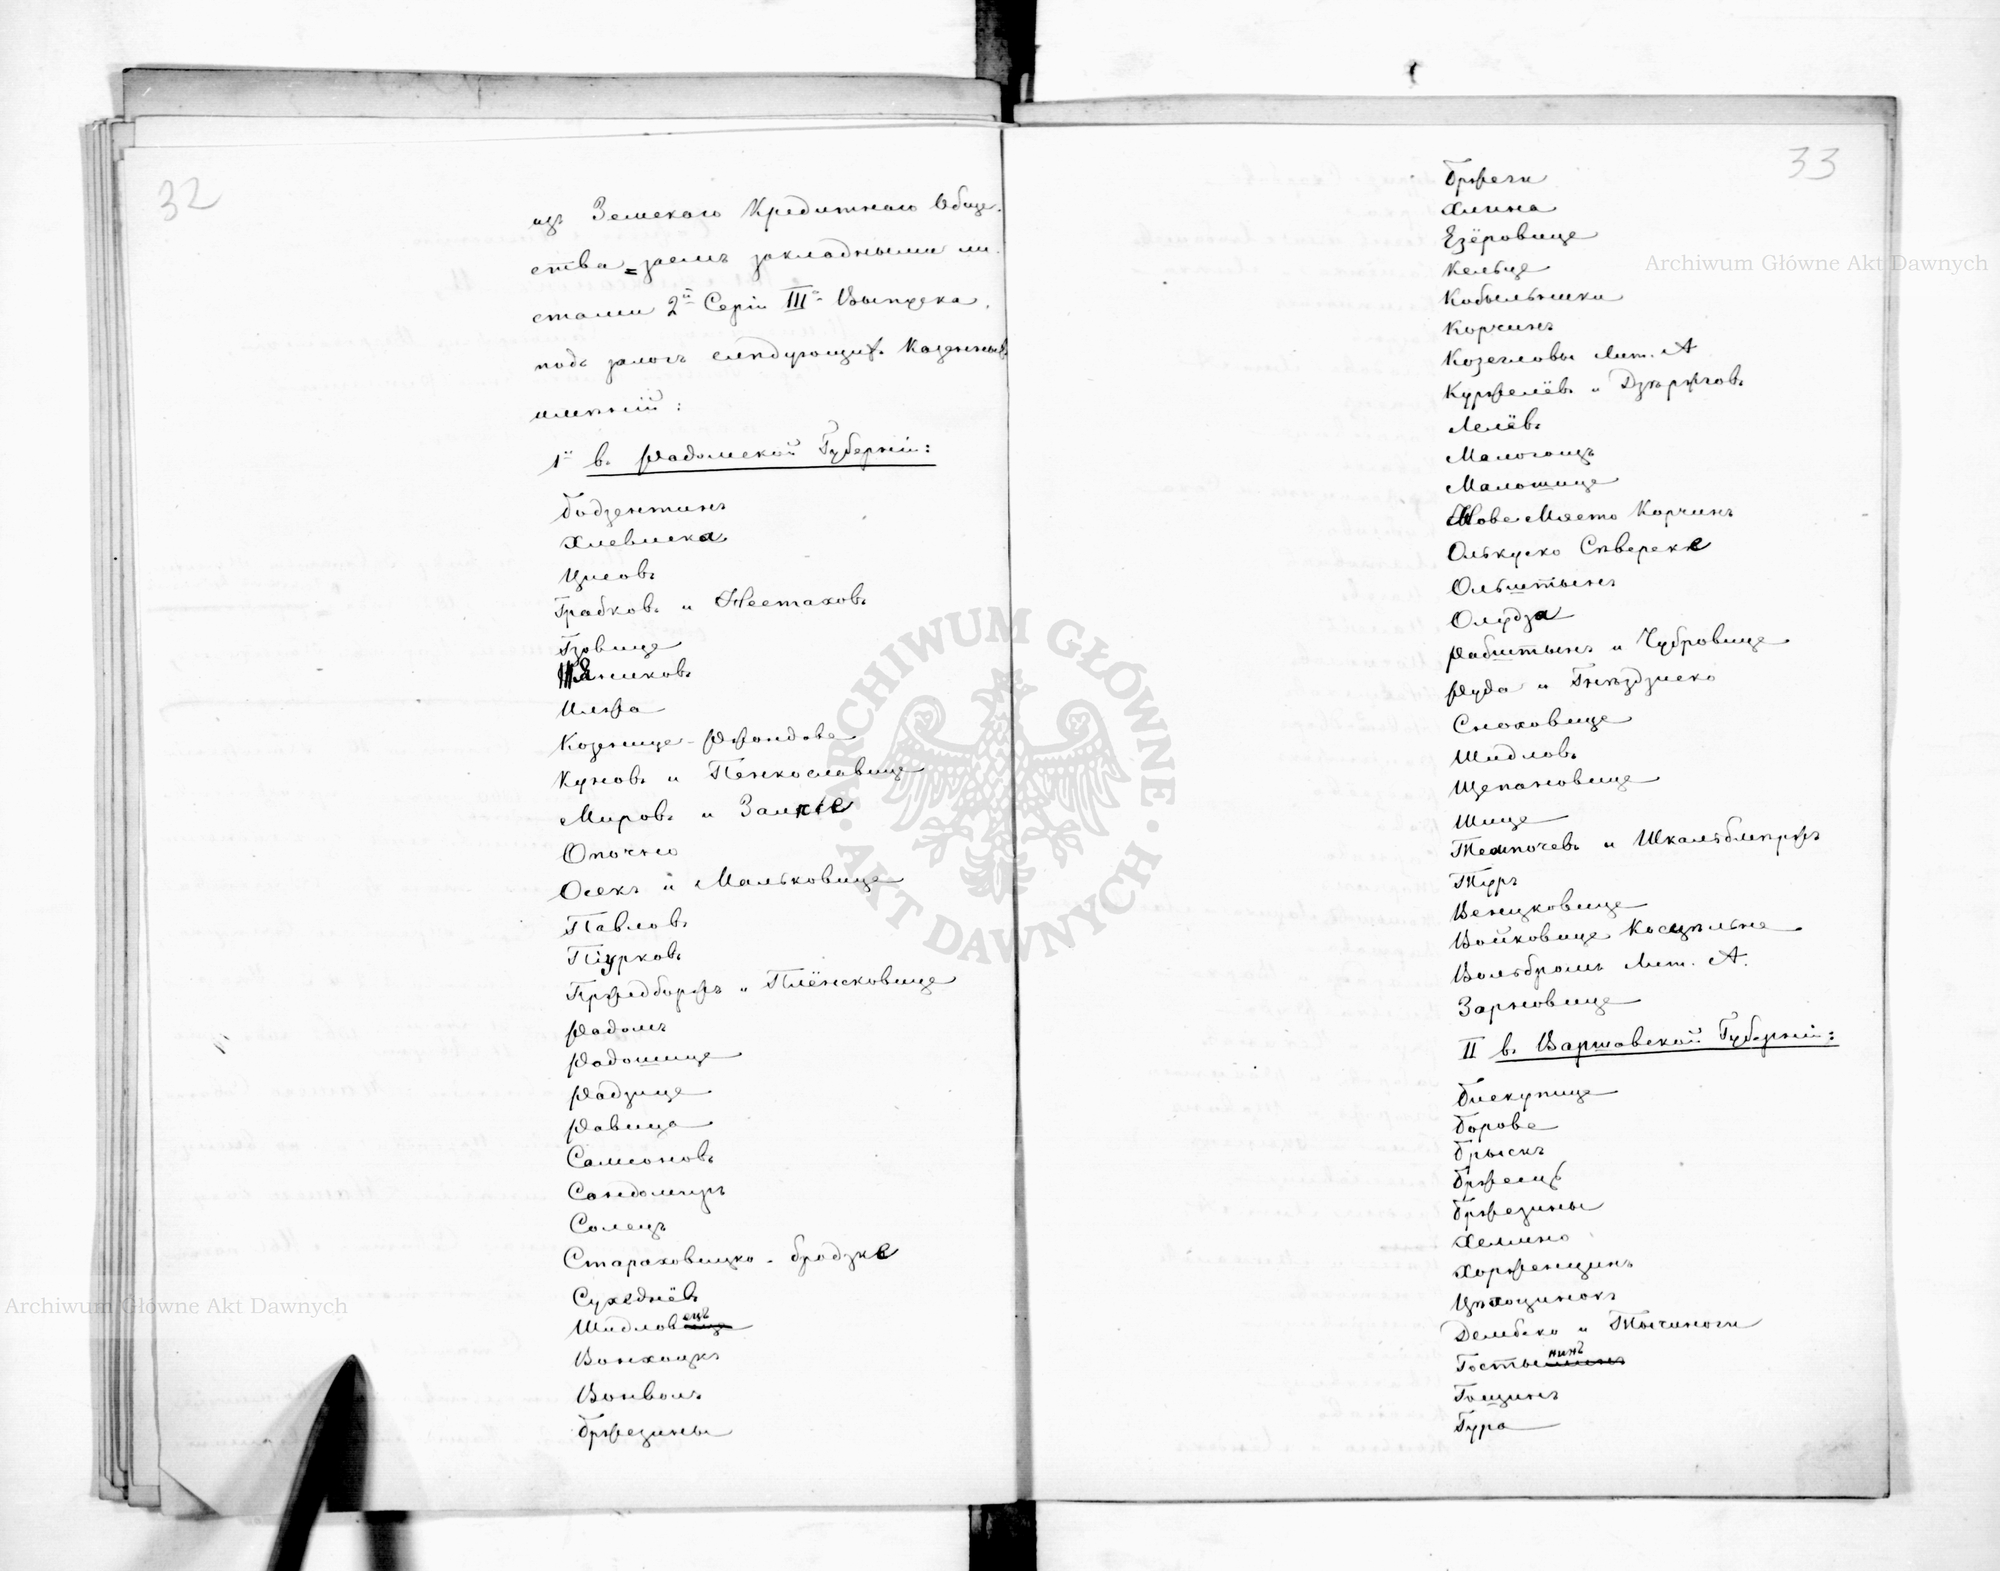 32
изъ Земскаго Кредитнаго Обще-
ства = заемъ закладными ли-
стами 2й Серіи IIIго Выпуска,
подъ залогъ слѣдующихъ Казенныхъ
имѣній:
1й въ Радомской Губерніи:
Бодзентинъ
Хлевиска
Цисовъ
Грабковъ и Нестаховъ
Гзовице
Илжа
Козенице-Ржондове
Куновъ и Пенкославице
Мировъ и Замкіе
Опочно
Осекъ и Мальковице
Павловъ
Піурковъ
Пржедборжъ и Плёнсковице
Радомъ
Радошице
Радзице
Равица
Самсоновъ
Сандомиръ
Солецъ
Стараховицко-бродзке
Сухеднёвъ
Шидловецъ
Вонхоцкъ
Вонволъ
Бржезины
33
Бржеги
Хлина
Езёровице
Кельце
Кобыльники
Корчинъ
Козегловы Лит. А
Куржелёвъ и Дзѣржговъ
Лелёвъ
Малогощъ
Малошице
Нове Място Корчинъ
Олькуско Сѣверске
Ольштынъ
Олудза
Рабштынъ и Чубровице
Руда и Гнѣздзиско
Смоховице
Шидловъ
Щепановице
Шице
Темпочевъ и Шкальбмержъ
Туръ
Венцковице
Войковице Косцѣльне
Вольбромъ Лит. А.
Зарновице
II въ Варшавской Губерніи:
Бискупице
Борове
Брыскъ
Бржесць
Бржезины
Хелмно
Хорженцинъ
Цѣхоцинокъ
Дембско и Тычиноги
Гостынинъ
Гощинъ
Гура
Archiwum Główne Akt Dawnych
Archiwum Główne Akt Dawnych
ARCHIWUM GŁÓWNE AKT DAWNYCH